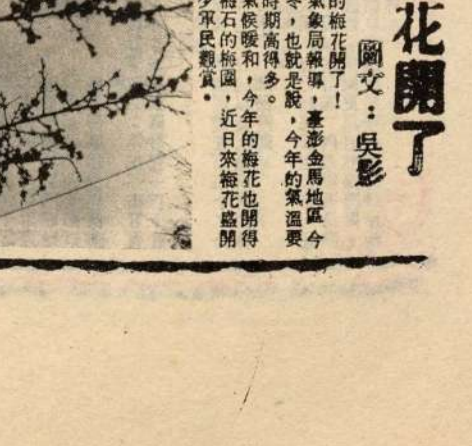 花開了
圖文：吳影
的梅花開了！
氣象局報導，臺澎金馬地區今
冬，也就是說，今年的氣溫要
時期高得多。
氣候暖和，今年的梅花也開得
梅石的梅園，近日來梅花盛開
少軍民觀賞。